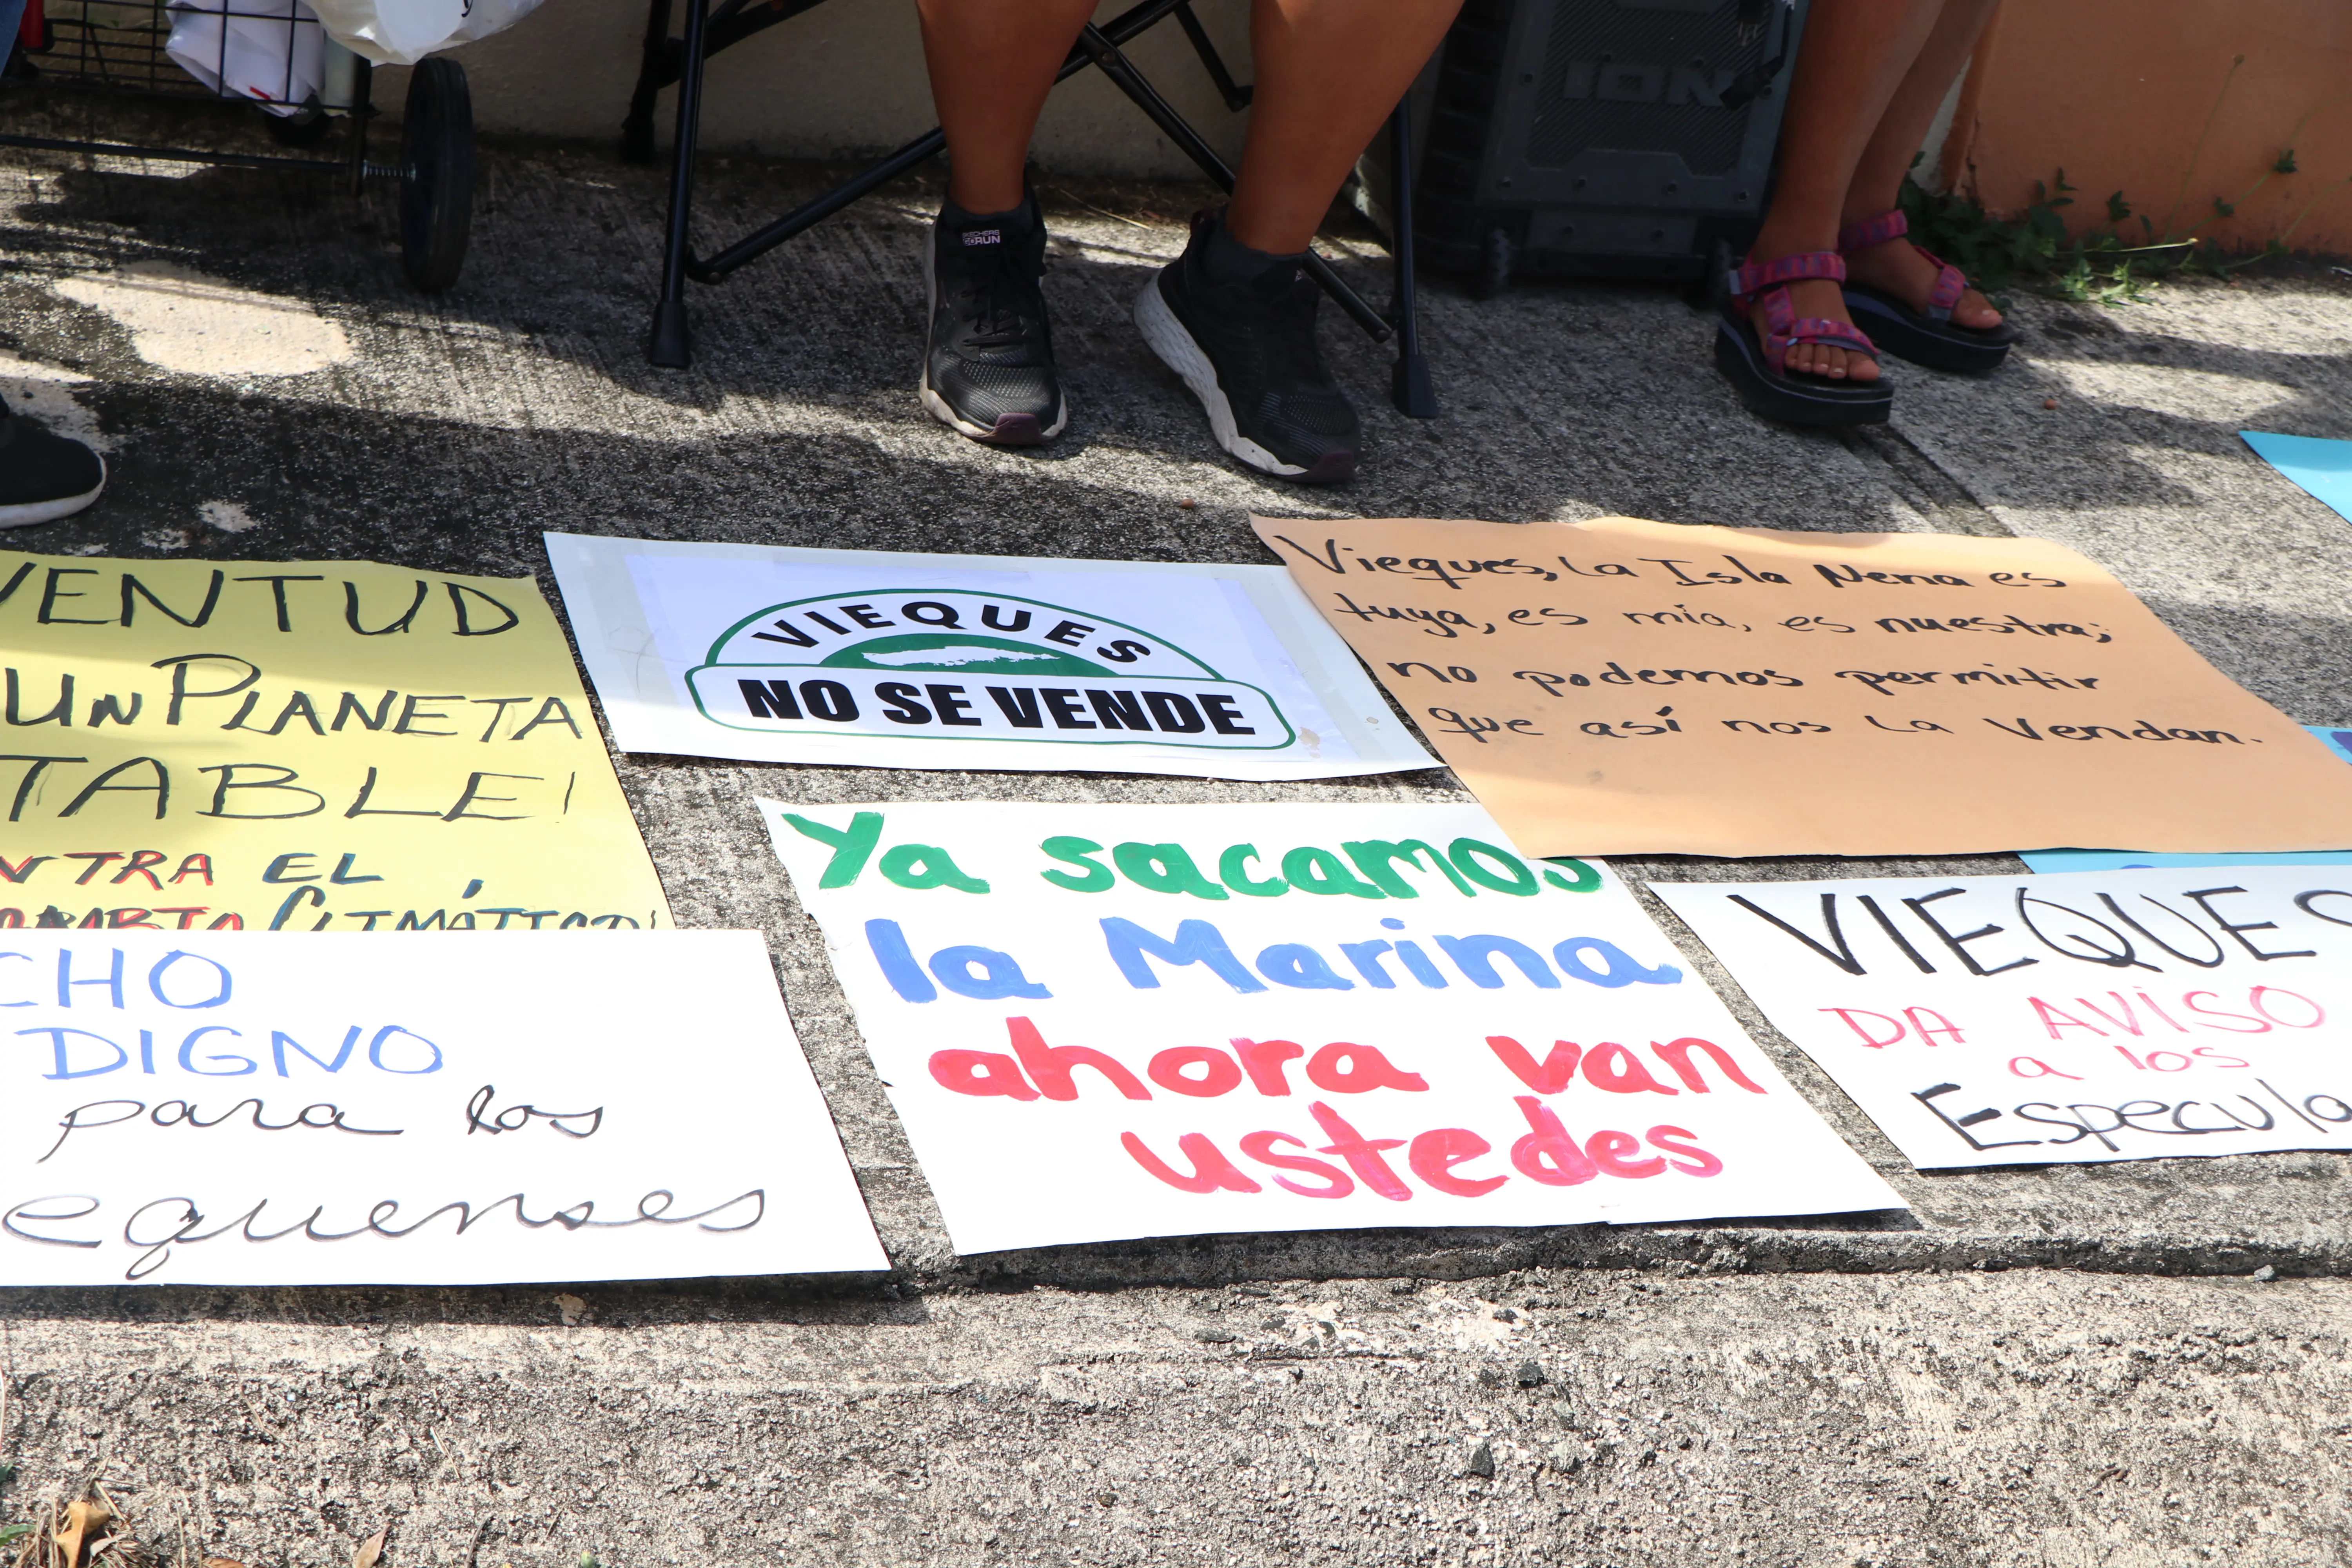 SKECHERS
GORUN
ION
VENTUD
UN PLANETA
TABLE!
NTRA EL
CLIMÁTICO!
VIEQUES
NO SE VENDE
Vieques, La Isla Nena es
tuya, es mía, es nuestra;
no podemos permitir
que así nos la Vendan.
CHO
DIGNO
para los
equenses
Ya sacamos
la Marina
ahora van
ustedes
VIEQUES
DA AVISO
a los
Especula